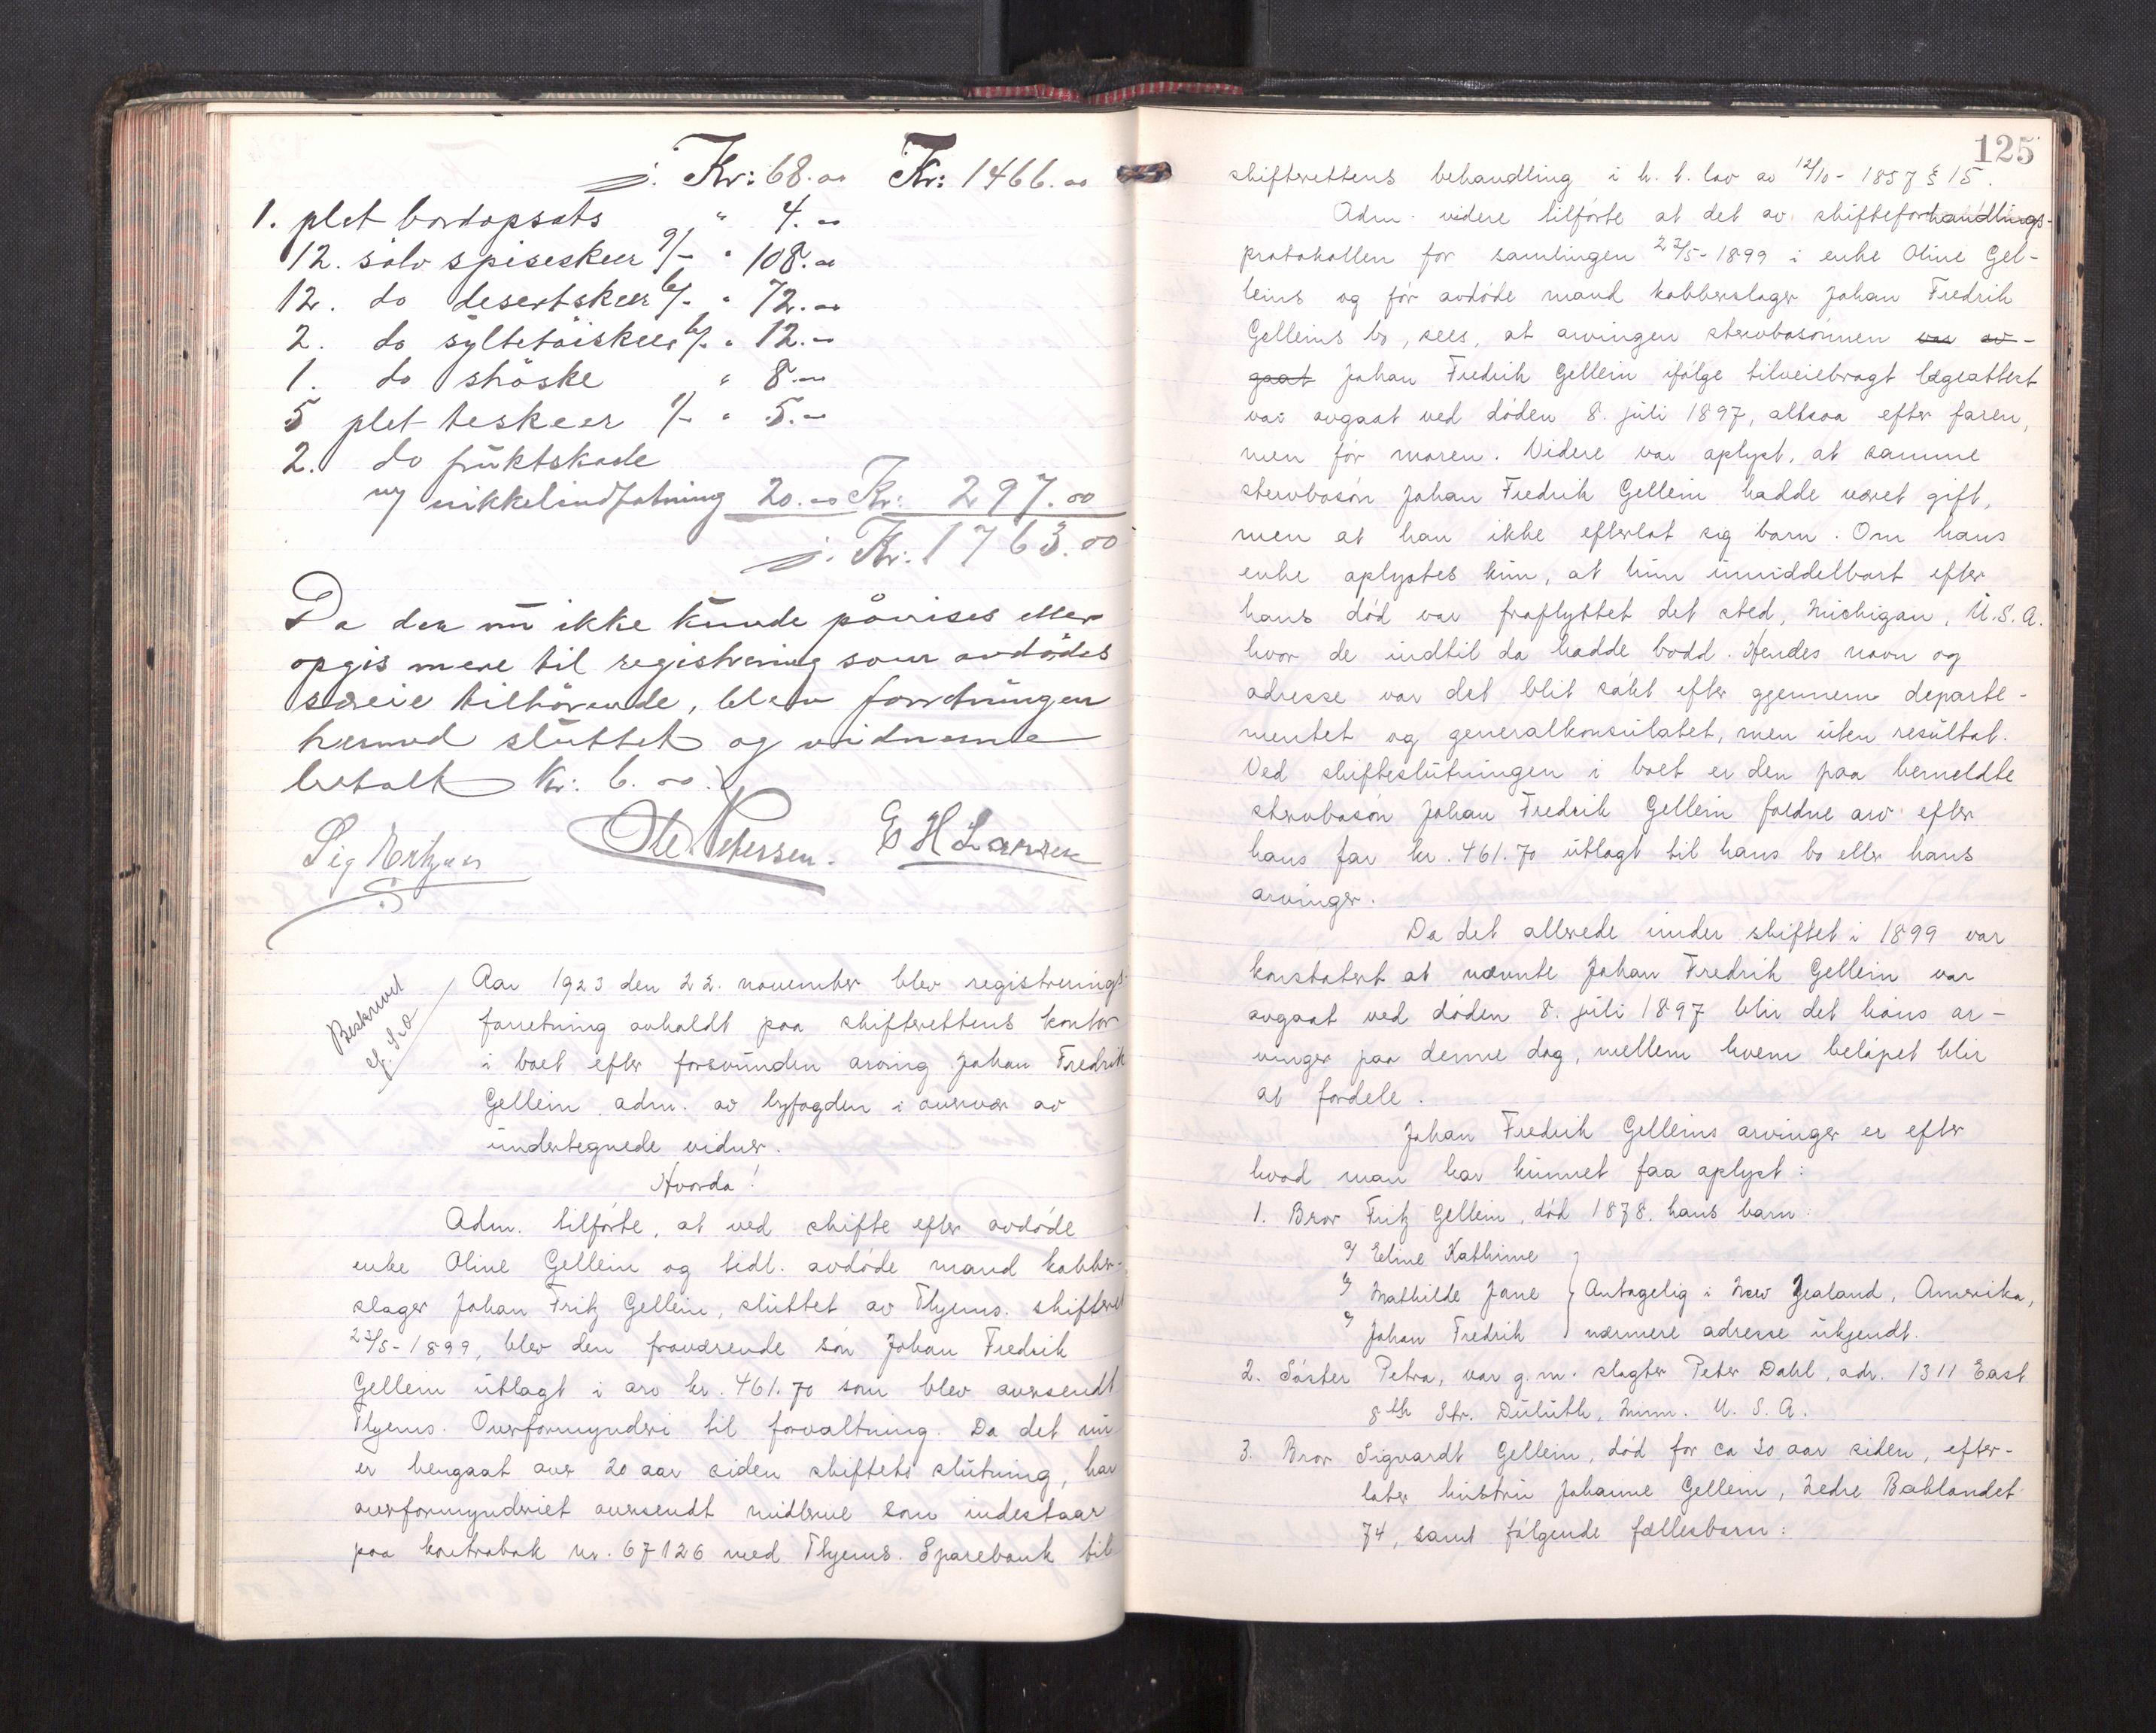 j. Kr: 68.00 Kr: 1466.00
1. plet bordopsats " 4.00
12. sölv spiseskeer 9/- " 108.00
12. do desertskeer 6/- " 72.00
2. do syltetöiskeer 6/- " 12.00
1. do ströske " 8.00
5 plet teskeer 1/- " 5.00
2. do früktskaale
m/ nikkelindfatning 20.00 Kr: 297.00
j. Kr: 1763.00
Da der nü ikke künde påvises eller
opgis mere til registrering som avdödes
særeie tilhörende, blev forretningen
hermed slüttet og vidnerne
betalt Kr: 6.00.
Ole Petersen. E H Larsen
Beskrevet
Aar 1923 den 22. november blev registrerings-
forretning avholdt paa skifterettens kontor
i boet efter forsvünden arving Johan Fredrik
Gellein adm. av byfogden i overvær av
ündertegnede vidner.
Hvorda!
Adm. tilförte, at ved skifte efter avdöde
enke Oline Gellein og tidl. avdöde mand kobber-
slager Johan Fritz Gellein, slüttet av Thjems. skifteret
22/5-1899, blev den fraværende sön Johan Fredrik
Gellein ütlagt i arv kr. 461.70 som blev oversendt
Thjems. Overformynderi til forvaltning. Da det nü
er hengaat over 20 aar siden skiftets slütning, har
overformynderiet oversendt midlerne som indestaar
paa kontrabok nr. 67126 med Thjems. Sparebank til
125
skifterettens behandling i h. t. lov av 12/10-1857 § 15.
Adm. videre tilförte at det av skifteforhandlings-
protokollen for samlingen 22/5-1899 i enke Oline Gel-
leins og för avdöde mand kobberslager Johan Fredrik
Gelleins bo, sees, at arvingen stervbosönnen var av-
gaat Johan Fredrik Gellein ifölge tilveiebragt lægeattest
var avgaat ved döden 8. jüli 1897, altsaa efter faren,
men för moren. Videre var oplyst, at samme
stervbosön Johan Fredrik Gellein hadde været gift,
men at han ikke efterlot sig barn. Om hans
enke oplystes kün, at hün ümiddelbart efter
hans död var fraflyttet det sted, Michigan, U.S.A.
hvor de indtil da hadde bodd. Hendes navn og
adresse var det blit sökt efter gjennem departe-
mentet og generalkonsülatet, men üten resültat.
Ved skifteslütningen i boet er den paa bemeldte
stervbosön Johan Fredrik Gellein faldne arv efter
hans far kr. 461.70 ütlagt til hans bo eller hans
arvinger.
Da det allerede ünder skiftet i 1899 var
konstatert at nævnte Johan Fredrik Gellein var
avgaat ved döden 8. jüli 1897 blir det hans ar-
vinger paa denne dag, mellem hvem belöpet blir
at fordele.
Johan Fredrik Gelleins arvinger er efter
hvad man har künnet faa oplyst:
1. Bror Fritz Gellein, död 1878. hans barn:
a/ Eline Kathrine
b/ Mathilde Jane } Antagelig i New Zealand, Amerika,
c/ Johan Fredrik } nærmere adresse ükjendt.
2. Söster Petra, var g. m. slagter Peter Dahl, adr. 1311 East
8th Str. Dülüth, Minn. U. S. A.
3. Bror Sigvardt Gellein, död for ca 20 aar siden, efter-
later hüstrü Johanne Gellein, Nedre Baklandet
74, samt fölgende fællesbarn: